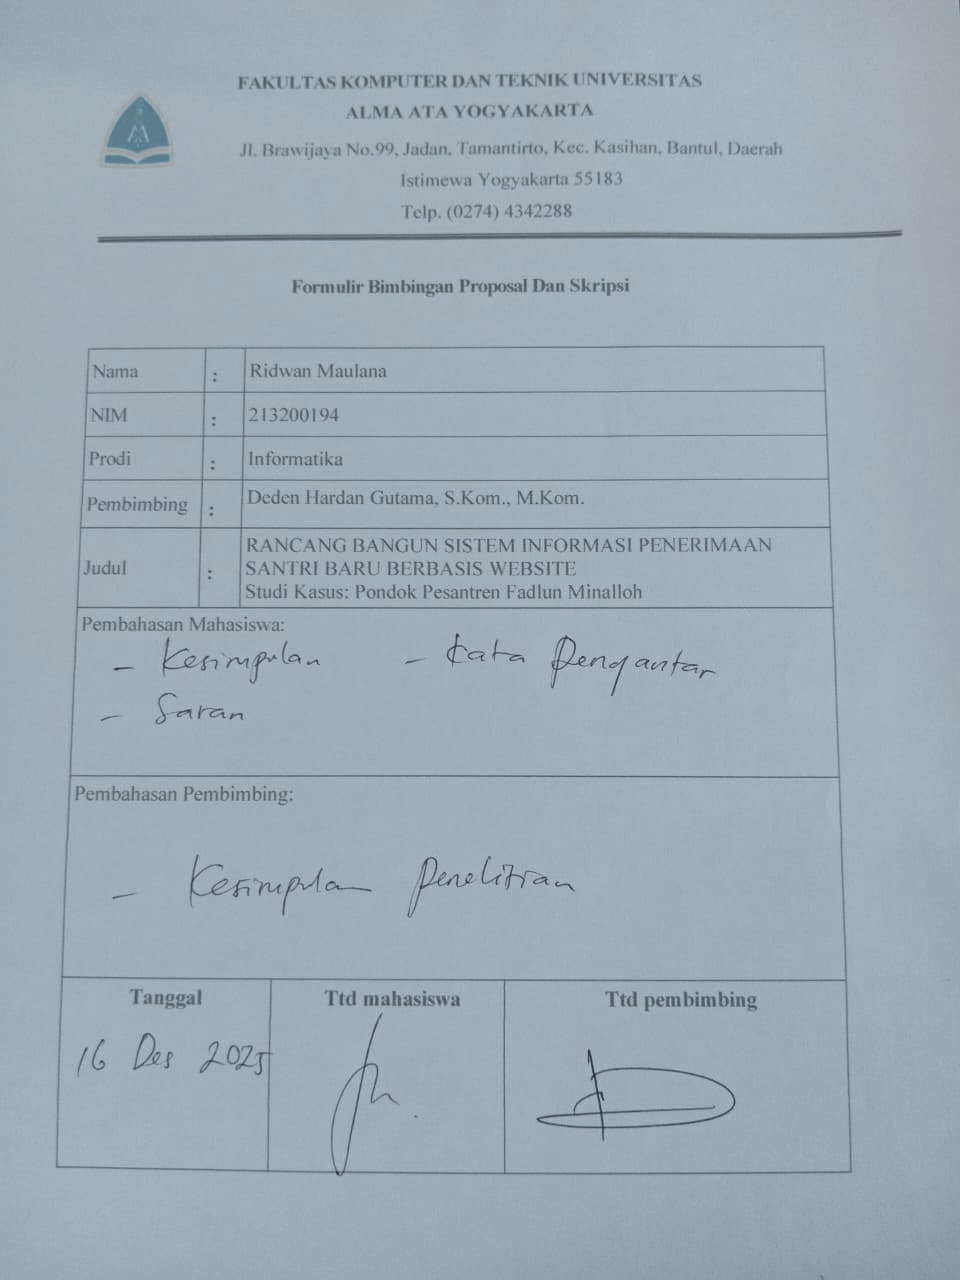 FAKULTAS KOMPUTER DAN TEKNIK UNIVERSITAS
ALMA ATA YOGYAKARTA
Jl. Brawijaya No.99, Jadan, Tamantirto, Kec. Kasihan, Bantul, Daerah
Istimewa Yogyakarta 55183
Telp. (0274) 4342288
Formulir Bimbingan Proposal Dan Skripsi
Nama : Ridwan Maulana
NIM : 213200194
Prodi : Informatika
Pembimbing : Deden Hardan Gutama, S.Kom., M.Kom.
Judul : RANCANG BANGUN SISTEM INFORMASI PENERIMAAN
SANTRI BARU BERBASIS WEBSITE
Studi Kasus: Pondok Pesantren Fadlun Minalloh
Pembahasan Mahasiswa:
- Kesimpulan - Kata Pengantar
- Saran
Pembahasan Pembimbing:
- Kesimpulan Penelitian
Tanggal Ttd mahasiswa Ttd pembimbing
16 Des 2025